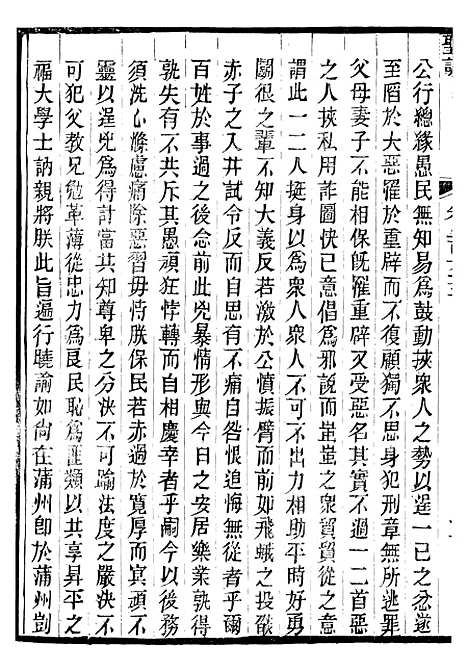 聖訓
公行總緣愚民無知易爲鼓動挾衆人之勢以逞一己之忿遂
至陷於大惡罹於重辟而不復顧獨不思身犯刑章無所逃罪
父母妻子不能相保旣罹重辟又受惡名其實不過一二首惡
之人挾私用詐圖快己意倡爲邪說而蚩蚩之衆貿貿從之意
謂此一二人挺身以爲衆人衆人不可不出力相助平時好勇
鬭很之輩不知大義反激於公憤振臂而前如飛蛾之投燄
赤子之入井試令反而自思有不痛自咎恨追悔無從者乎爾
百姓於事過之後念前此兇暴情形與今日之安居樂業孰得
孰失有不共斥其愚頑狂悖轉而自相慶幸者乎嗣今以後務
須洗心滌慮痛除惡習毋恃朕保民若赤過於寬厚而冥頑不
靈以逞兇爲得計當共知尊卑之分決不可踰法度之嚴決不
可犯父教兄勉革薄從忠力爲良民恥爲匪類以共享昇平之
福大學士訥親將朕此旨遍行曉諭如尙在蒲州卽於蒲州剴